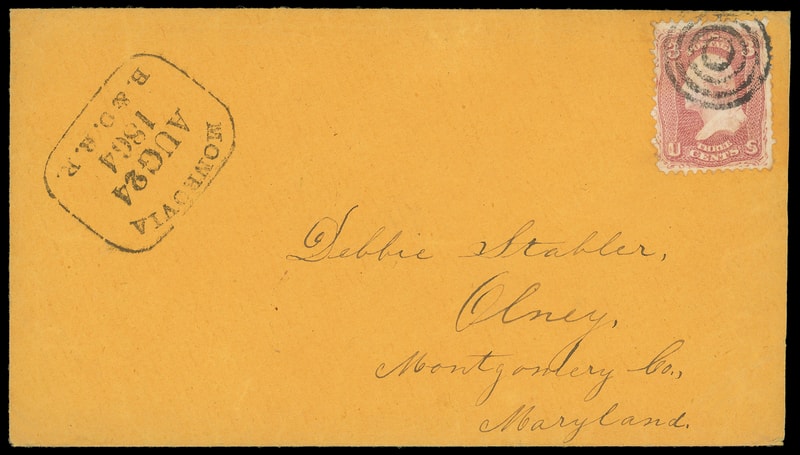 MONROVIA
AUG 24
1864
B. & O. R. R.
3 3
U THREE S
CENTS
Debbie Stabler,
Olney,
Montgomery Co.,
Maryland.